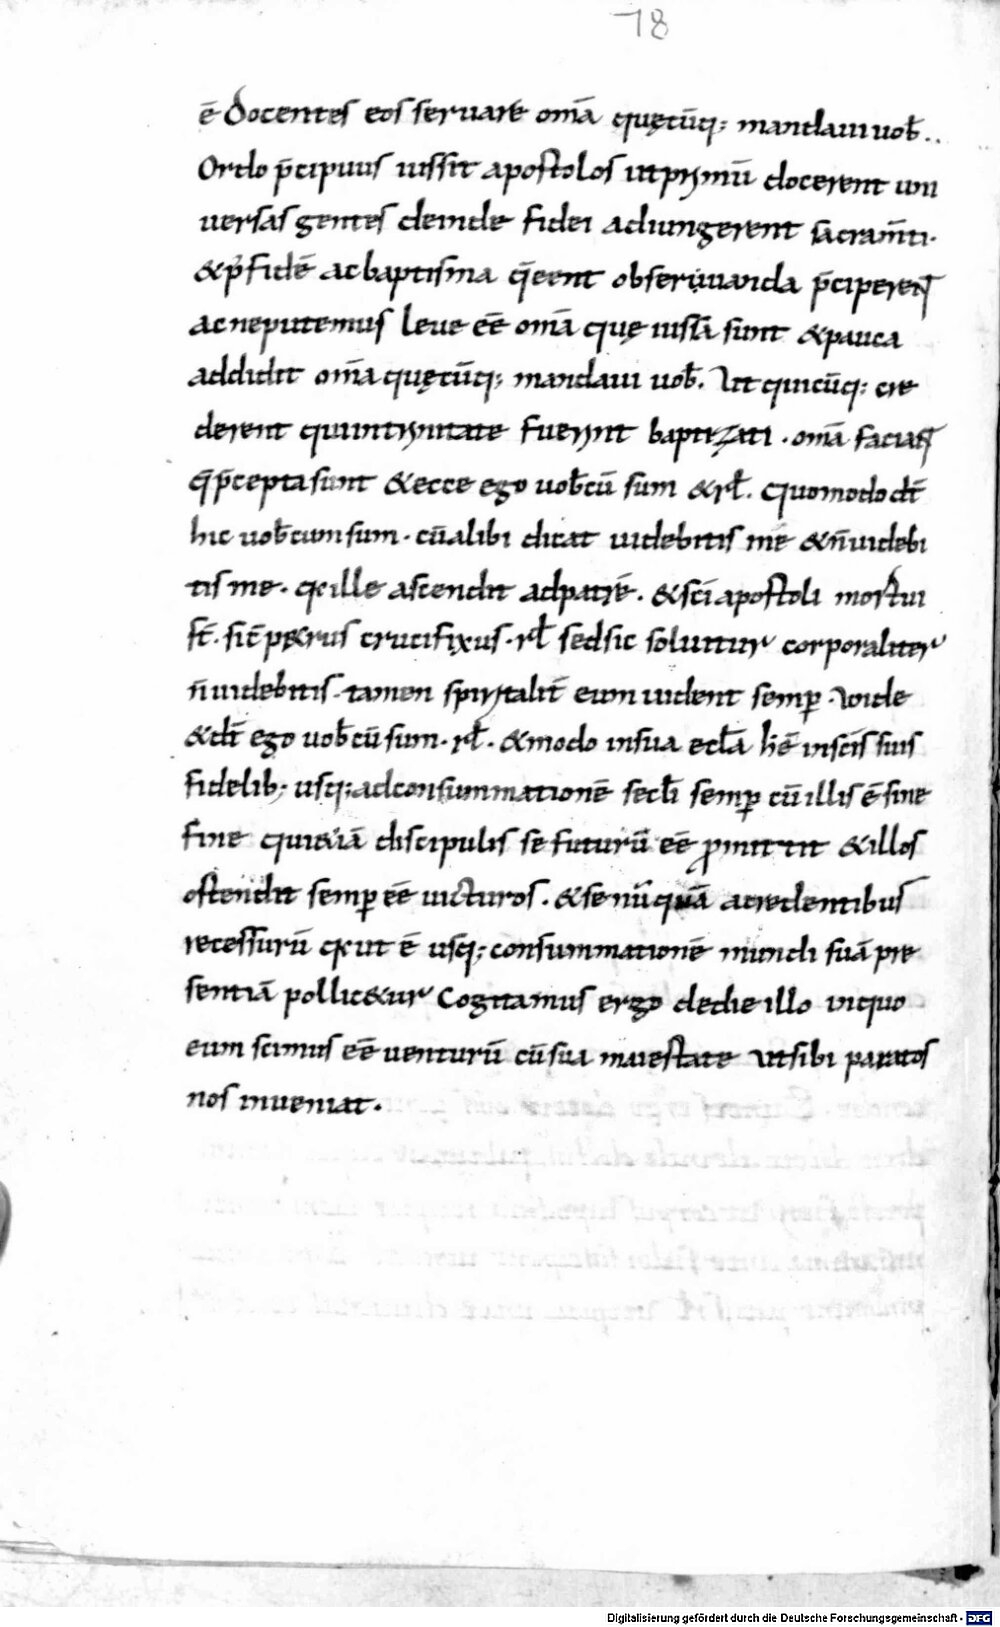 78
ē docentes eos seruare om̄a quęcūq; mandaui uob̄..
Ordo p̄cipuus iussit apostolos ut primū docerent uni
uersas gentes deinde fidei adiungerent sacram̄ti.
& p̄ fidē ac baptisma q̄ eent obseruanda p̄ciperent
ac ne putemus leue eē om̄a quę iussa sunt & pauca
addidit om̄a quęcūq; mandaui uob̄. Ut quicūq; cre
derent qui in trinitate fuerint baptizati. om̄a faciant
q̄ p̄cepta sunt & ecce ego uob̄cū sum & rł. Quomodo dt̄
hic uob̄cum sum. cū alibi dicat uidebitis mé & n̄ uidebi
tis me. q ille ascendit ad patrē. & sc̄i apostoli mortui
st̄. sic̄ p&rus crucifixus. rł sed sic soluitur corporaliter
n̄ uidebitis. tamen spiritalit̄ eum uident semp. Vide
& dt̄ ego uob̄cū sum. rł. & modo in sua eccła hē in sc̄is suis
fidelib; usq; ad consummationē secłi semp cū illis ē sine
fine qui &iā discipulis se futurū eē promittit & illos
ostendit semp eē uicturos. & se nūquā a credentibus
recessurū q ut ē usq; consummationē mundi suā pre
sentiā pollic&ur Cogitamus ergo de die illo in quo
eum scimus eē uenturū cū sua maiestate ut sibi paratos
nos inueniat.
Digitalisierung gefördert durch die Deutsche Forschungsgemeinschaft - DFG